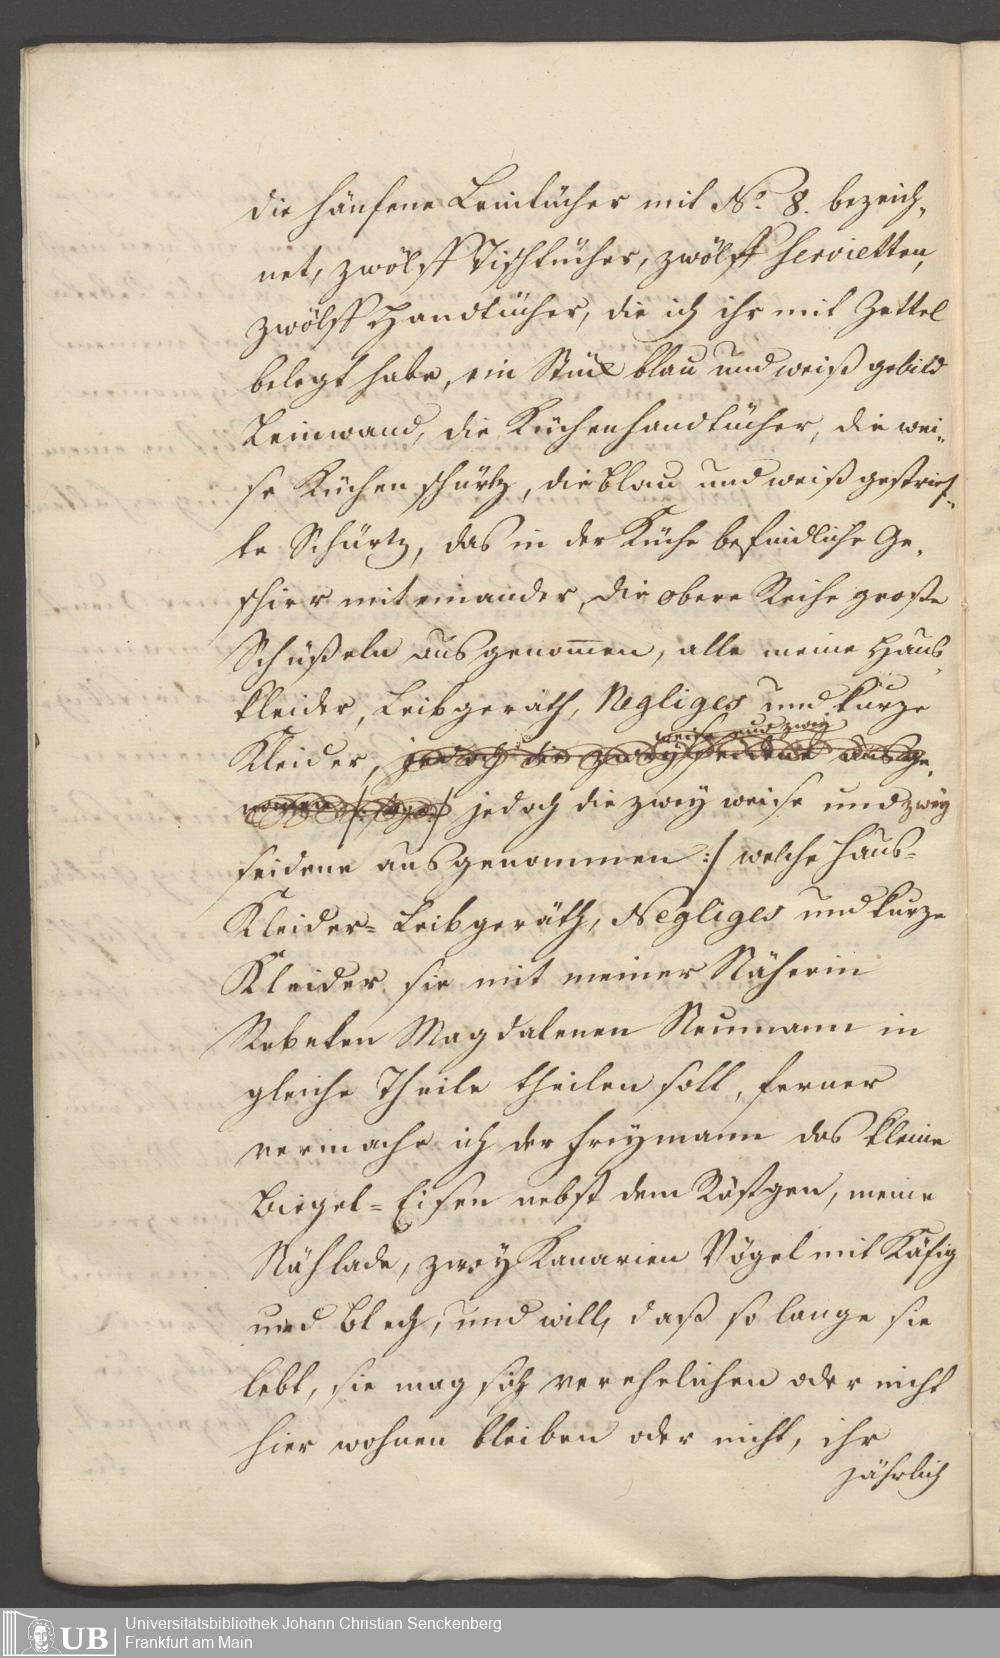 die häufene Leintücher mit No. 8. bezeich,
net, zwölff Tischtücher, zwölff Servietten,
zwölff Handtücher, die ich ihr mit Zettel
belegt habe, ein Stück blau und weiß gebild
Leinwand, die Küchenhandtücher, die wei,,
se Küchen schürtz, die blau und weiß gestreif,,
te Schürtz, das in der Küche befindliche Ge,
schirr mit einander, die obere Reihe große
Schüßeln ausgenom̅en, alle meine Haus,
kleider, Leibgeräth, Negligés und kurze
weise und zwey
Kleider, jedoch die zwey seidene ausge,
nom̅en jedoch die zwey weise und zwey
seidene ausgenommen :/ welche Haus=
Kleider= Leibgeräth, Negliges und kurze
Kleider sie mit meiner Näherin
Rebeken Magdalenen Neumann in
gleiche Theile theilen soll, ferner
vermache ich der Freymann das kleine
Biegel=Eisen nebst dem Röstgen, meine
Nählade, zwey Kanarien Vögel mit Käfig
und Blech, und will, daß so lange sie
lebt, sie mag sich verehelichen oder nicht
hier wohnen bleiben oder nicht, ihr
jährlich
UB
Universitätsbibliothek Johann Christian Senckenberg
Frankfurt am Main